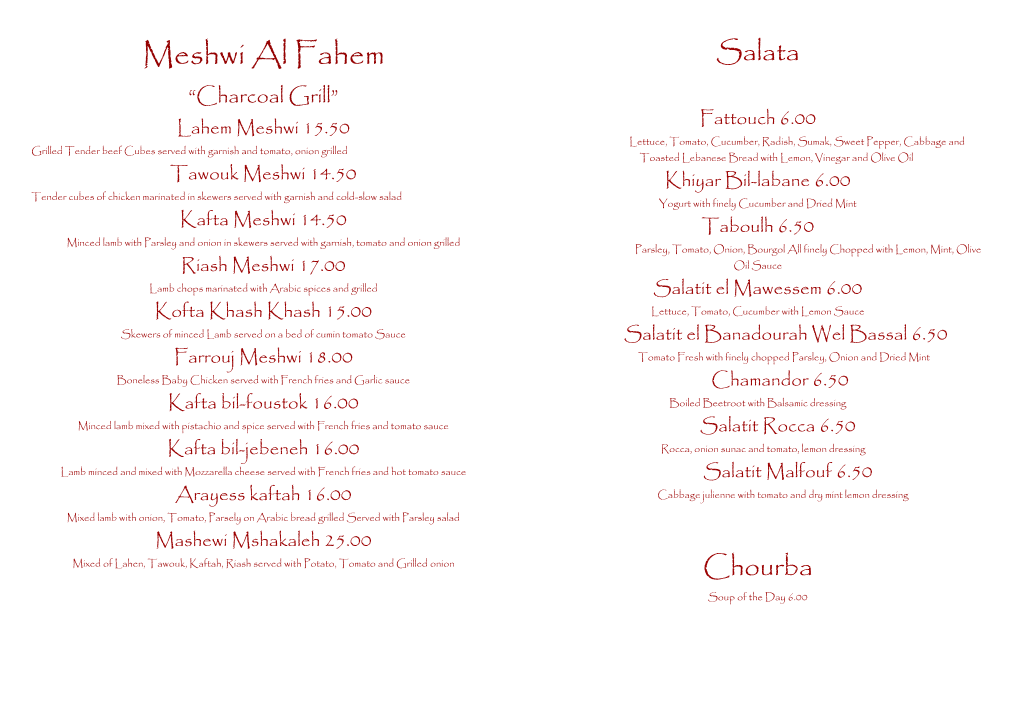 Meshwi Al Fahem
“Charcoal Grill”
Lahem Meshwi 15.50
Grilled Tender beef Cubes served with garnish and tomato, onion grilled
Tawouk Meshwi 14.50
Tender cubes of chicken marinated in skewers served with garnish and cold-slow salad
Kafta Meshwi 14.50
Minced lamb with Parsley and onion in skewers served with garnish, tomato and onion grilled
Riash Meshwi 17.00
Lamb chops marinated with Arabic spices and grilled
Kofta Khash Khash 15.00
Skewers of minced Lamb served on a bed of cumin tomato Sauce
Farrouj Meshwi 18.00
Boneless Baby Chicken served with French fries and Garlic sauce
Kafta bil-foustok 16.00
Minced lamb mixed with pistachio and spice served with French fries and tomato sauce
Kafta bil-jebeneh 16.00
Lamb minced and mixed with Mozzarella cheese served with French fries and hot tomato sauce
Arayess kaftah 16.00
Mixed lamb with onion, Tomato, Parsely on Arabic bread grilled Served with Parsley salad
Mashewi Mshakaleh 25.00
Mixed of Lahen, Tawouk, Kaftah, Riash served with Potato, Tomato and Grilled onion
Salata
Fattouch 6.00
Lettuce, Tomato, Cucumber, Radish, Sumak, Sweet Pepper, Cabbage and
Toasted Lebanese Bread with Lemon, Vinegar and Olive Oil
Khiyar Bil-labane 6.00
Yogurt with finely Cucumber and Dried Mint
Taboulh 6.50
Parsley, Tomato, Onion, Bourgol All finely Chopped with Lemon, Mint, Olive
Oil Sauce
Salatit el Mawessem 6.00
Lettuce, Tomato, Cucumber with Lemon Sauce
Salatit el Banadourah Wel Bassal 6.50
Tomato Fresh with finely chopped Parsley, Onion and Dried Mint
Chamandor 6.50
Boiled Beetroot with Balsamic dressing
Salatit Rocca 6.50
Rocca, onion sunac and tomato, lemon dressing
Salatit Malfouf 6.50
Cabbage julienne with tomato and dry mint lemon dressing
Chourba
Soup of the Day 6.00